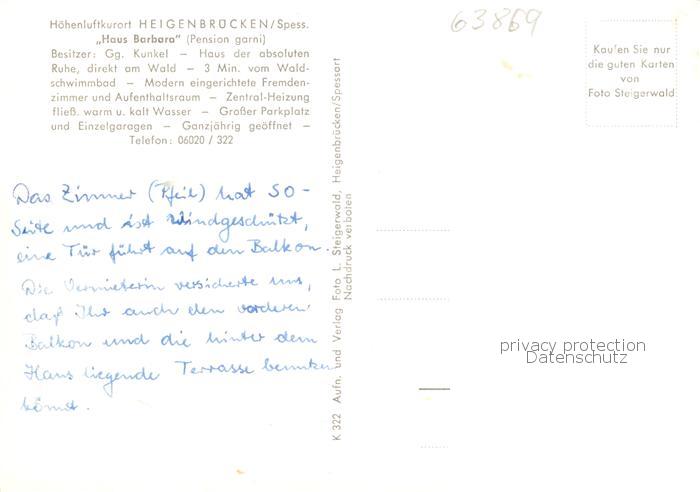 63869
Höhenluftkurort HEIGENBRÜCKEN/Spess.
„Haus Barbara" (Pension garni)
Besitzer: Gg. Kunkel — Haus der absoluten
Ruhe, direkt am Wald — 3 Min. vom Wald-
schwimmbad — Modern eingerichtete Fremden-
zimmer und Aufenthaltsraum — Zentral-Heizung
fließ. warm u. kalt Wasser — Großer Parkplatz
und Einzelgaragen — Ganzjährig geöffnet —
Telefon: 06020 / 322
Das Zimmer (Pfeil) hat SO-
Seite und ist windgeschützt,
eine Tür führt auf den Balkon.
Die Vermieterin versicherte uns,
daß Ihr auch den vorderen
Balkon und die hinter dem
Haus liegende Terrasse benutzen
könnt.
K 322 Aufn. und Verlag Foto L. Steigerwald, Heigenbrücken/Spessart
Nachdruck verboten
Kaufen Sie nur
die guten Karten
von
Foto Steigerwald
privacy protection
Datenschutz